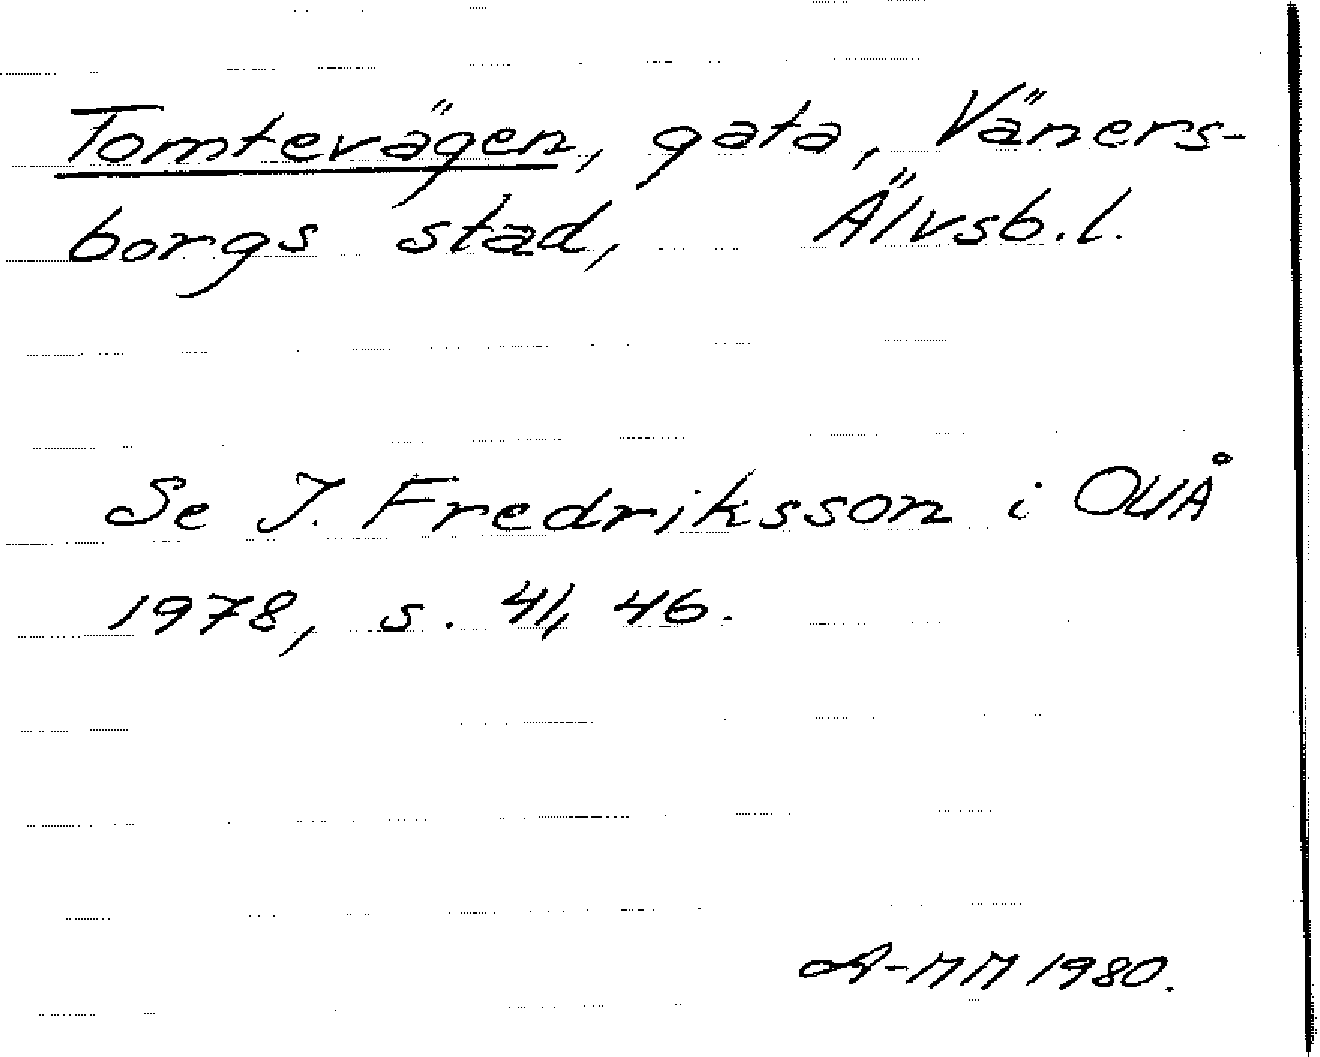 Tomtevägen, gata, Väners-
borgs stad, Älvsb.l.
Se I. Fredriksson i OUÅ
1978, s. 41, 46.
A-MM 1980.